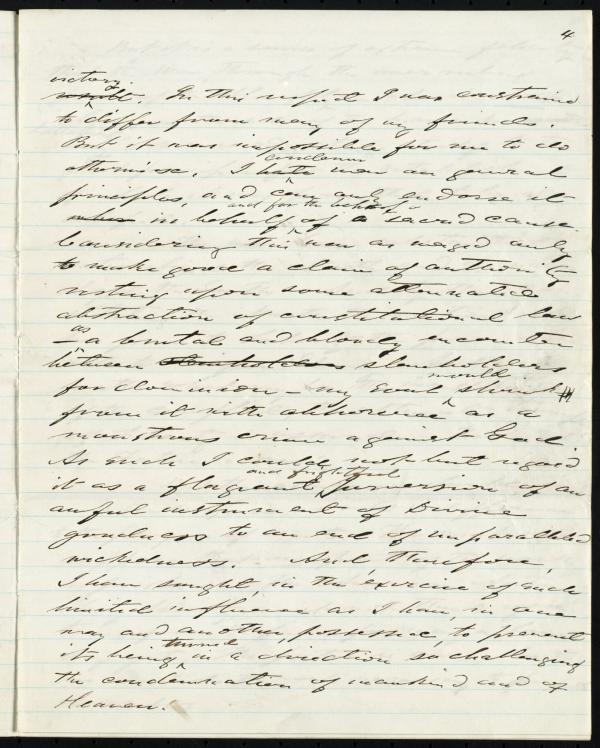 4
victory.
result. In this respect I was constrained
to differ from many of my friends.
But it was impossible for me to do
condemn
otherwise. I hate war on general
principles, and can only endorse it
and for the
when in behalf of a sacred cause.
Considering this war as waged only
to make good a claim of authority
resting upon some attenuated
abstraction of constitutional law
as
— a brutal and bloody encounter
between slaveholders slaveholders
would
for dominion — my soul shrink
from it with abhorrence as a
monstrous crime against God.
As such I could not but regard
and frightful
it as a flagrant perversion of an
awful instrument of Divine
goodness to an end of unparalleled
wickedness. And, therefore,
I have sought, in the exercise of such
limited influence as I have, in one
way and another, possessed, to prevent
turned
its being in a direction so challenging
the condemnation of mankind and of
Heaven.